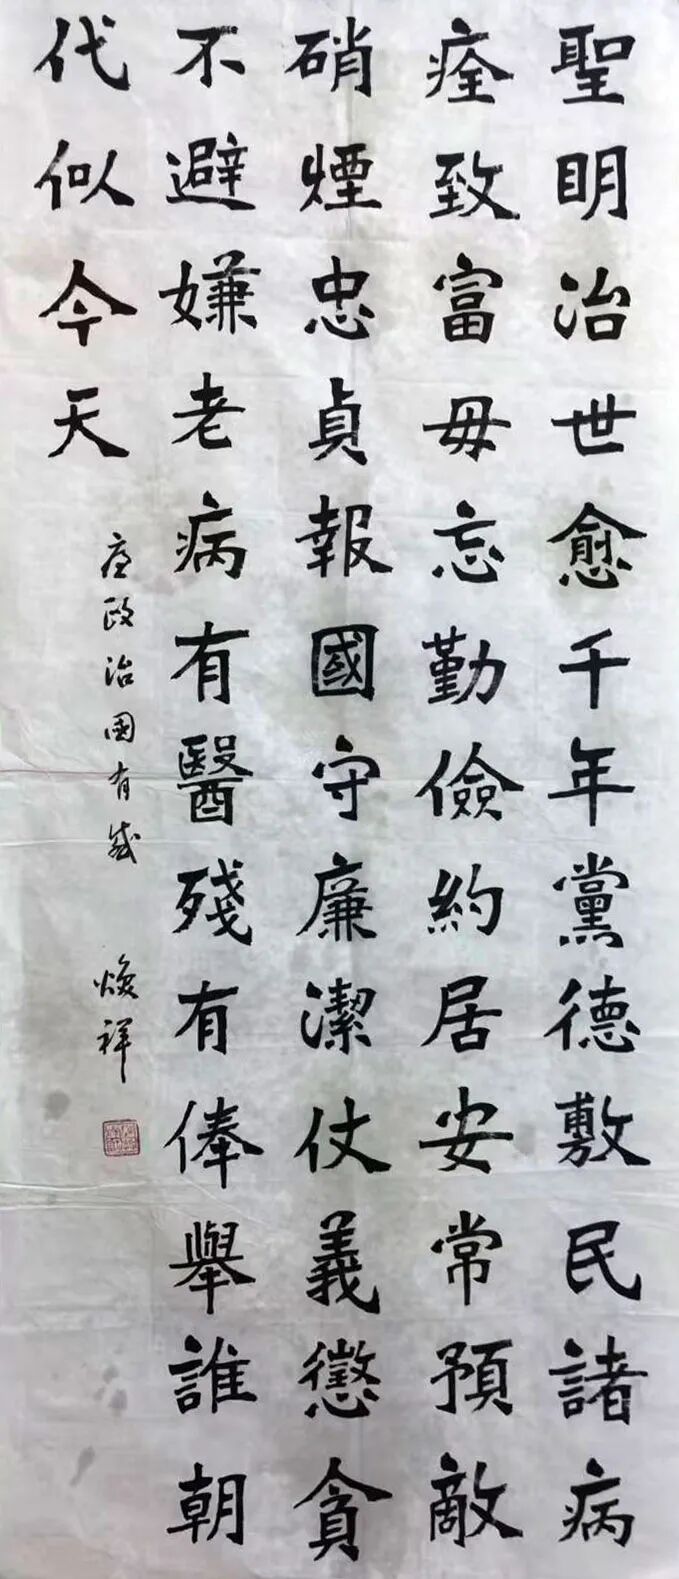 聖明治世愈千年黨德敷民諸病
痊致富毋忘勤儉約居安常預敵
硝煙忠貞報國守廉潔仗義懲貪
不避嫌老病有醫殘有俸舉誰朝
代似今天
政治國有感
煥祥